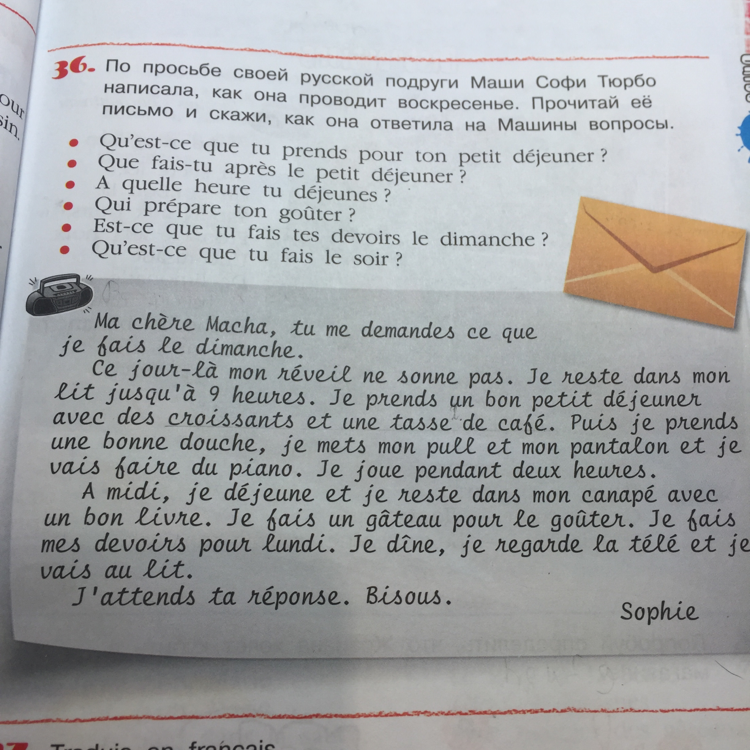 our
sin.
36. По просьбе своей русской подруги Маши Софи Тюрбо
написала, как она проводит воскресенье. Прочитай её
письмо и скажи, как она ответила на Машины вопросы.
• Qu'est-ce que tu prends pour ton petit déjeuner ?
• Que fais-tu après le petit déjeuner ?
• A quelle heure tu déjeunes ?
• Qui prépare ton goûter ?
• Est-ce que tu fais tes devoirs le dimanche ?
• Qu'est-ce que tu fais le soir ?
Ma chère Macha, tu me demandes ce que
je fais le dimanche.
Ce jour-là mon réveil ne sonne pas. Je reste dans mon
lit jusqu'à 9 heures. Je prends un bon petit déjeuner
avec des croissants et une tasse de café. Puis je prends
une bonne douche, je mets mon pull et mon pantalon et je
vais faire du piano. Je joue pendant deux heures.
A midi, je déjeune et je reste dans mon canapé avec
un bon livre. Je fais un gâteau pour le goûter. Je fais
mes devoirs pour lundi. Je dîne, je regarde la télé et je
vais au lit.
J'attends ta réponse. Bisous.
Sophie
37. Traduis en français